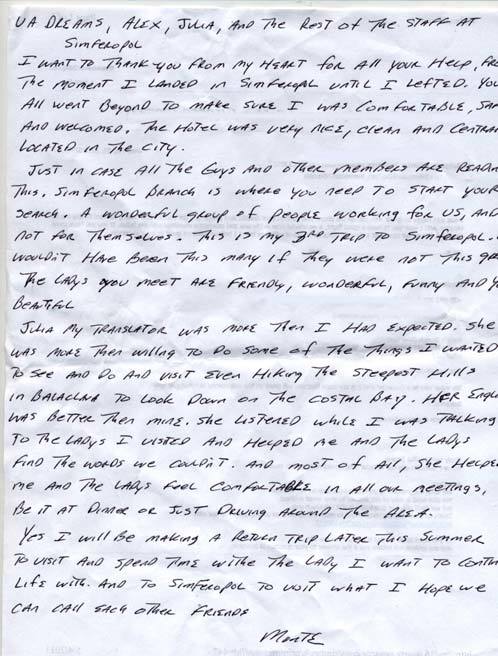 UA DREAMS, ALEX, JULIA, AND THE REST OF THE STAFF AT
SIMFEROPOL
I WANT TO THANK YOU FROM MY HEART FOR ALL YOUR HELP, FRO
THE MOMENT I LANDED IN SIMFEROPL UNTIL I LEFTED. YOU
ALL WENT BEYOND TO MAKE SURE I WAS COMFORTABLE,
AND WELCOMED. THE HOTEL WAS VERY NICE, CLEAN AND CENTRA
LOCATED IN THE CITY.
JUST IN CASE ALL THE GUYS AND OTHER MEMBERS ARE READIN
THIS. SIMFEROPOL BRANCH IS WHERE YOU NEED TO START YOUR
SEARCH. A WONDERFUL GROUP OF PEOPLE WORKING FOR US, AND
NOT FOR THEMSELVES. THIS IS MY 3RD TRIP TO SIMFEROPOL.
WOULDN'T HAVE BEEN THIS MANY IF THEY WERE NOT THIS GR
THE LADYS YOU MEET ARE FRIENDLY, WONDERFUL, FUNNY AND
BEAUTIFUL
JULIA MY TRANSLATOR WAS MORE THEN I HAD EXPECTED. SHE
WAS MORE THEN WILLNG TO DO SOME OF THE THINGS I WANTED
TO SEE AND DO AND VISIT EVEN HIKING THE STEEPEST HILLS
IN BALACLAVA TO LOOK DOWN ON THE COSTAL BAY. HER ENGLI
WAS BETTER THEN MINE. SHE LISTENED WHILE I WAS TALKING
TO THE LADYS I VISTED AND HELPED ME AND THE LADYS
FIND THE WORDS WE COULDN'T. AND MOST OF ALL, SHE HELPE
ME AND THE LADYS FEEL COMFORTABLE IN ALL OUR MEETINGS,
BE IT AT DINNER OR JUST DRIVING AROUND THE AREA.
YES I WILL BE MAKING A RETURN TRIP LATER THIS SUMMER
TO VISIT AND SPEND TIME WITHE THE LADY I WANT TO CONTIN
LIFE WITH. AND TO SIMFEROPOL TO VISIT WHAT I HOPE WE
CAN CALL EACH OTHER FRIENDS
MONTE